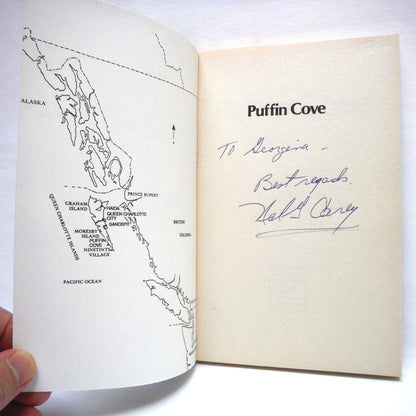 ALASKA
PRINCE RUPERT
GRAHAM
ISLAND
HAIDA
QUEEN CHARLOTTE
CITY
SANDSPIT
QUEEN CHARLOTTE ISLANDS
MORESBY
ISLAND
PUFFIN
COVE
NINSTINTS
VILLAGE
BRITISH
COLUMBIA
PACIFIC OCEAN
Puffin Cove
To Georgina –
Best regards.